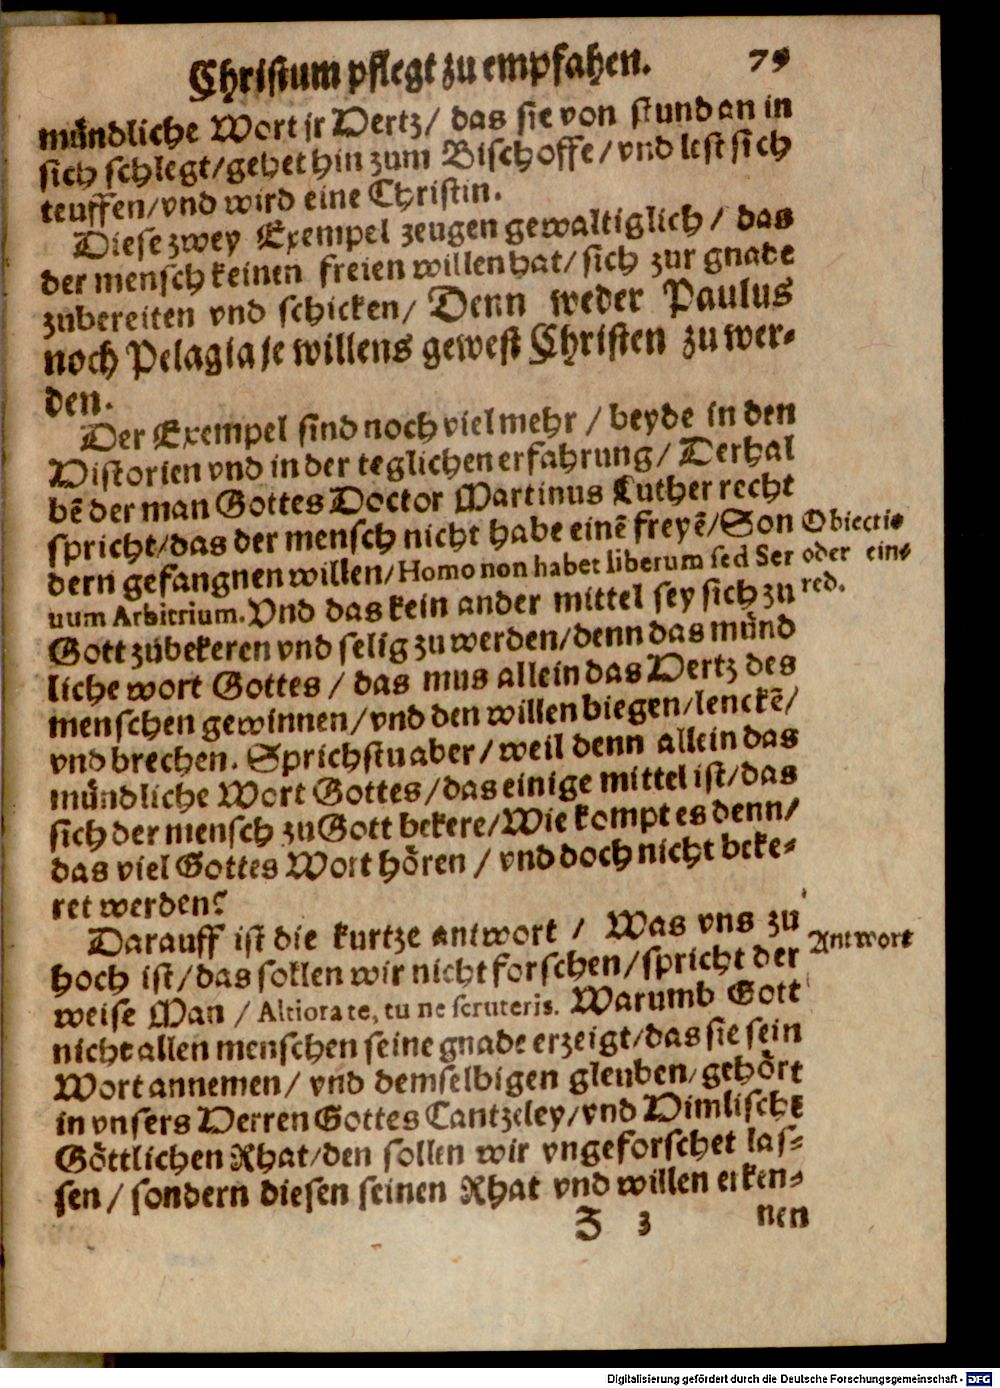 Christum pflegt zu empfahen. 79
mündliche Wort jr Hertz/ das sie von stund an in
sich schlegt/gehet hin zum Bischoffe/vnd lest sich
teuffen/vnd wird eine Christin.
Diese zwey Exempel zeugen gewaltiglich/ das
der mensch keinen freien willen hat/ sich zur gnade
zubereiten vnd schicken/ Denn weder Paulus
noch Pelagia je willens gewest Christen zu wer-
den.
Der Exempel sind noch viel mehr / beyde in den
Historien vnd in der teglichen erfahrung/ Derhal
bẽ der man Gottes Doctor Martinus Luther recht
spricht/das der mensch nicht habe einẽ freyẽ/Son
Obiecti-
dern gefangnen willen/Homo non habet liberum sed Ser
oder ein-
uum Arbitrium. Vnd das kein ander mittel sey sich zu
red.
Gott zubekeren vnd selig zu werden/denn das münd
liche wort Gottes / das mus allein das Hertz des
menschen gewinnen/vnd den willen biegen/lenckẽ/
vnd brechen. Sprichstu aber/ weil denn allein das
mündliche Wort Gottes/das einige mittel ist/das
sich der mensch zu Gott bekere/Wie kompt es denn/
das viel Gottes Wort hören / vnd doch nicht beke-
ret werden?
Darauff ist die kurtze antwort / Was vns zu
Antwort
hoch ist/das sollen wir nicht forschen/spricht der
weise Man / Altiora te, tu ne scruteris. Warumb Gott
nicht allen menschen seine gnade erzeigt/das sie sein
Wort annemen/ vnd demselbigen gleuben/gehört
in vnsers Herren Gottes Cantzeley/vnd Himlische
Göttlichen Rhat/den sollen wir vngeforschet las-
sen / sondern diesen seinen Rhat vnd willen erken-
Z 3 nen
Digitalisierung gefördert durch die Deutsche Forschungsgemeinschaft - DFG